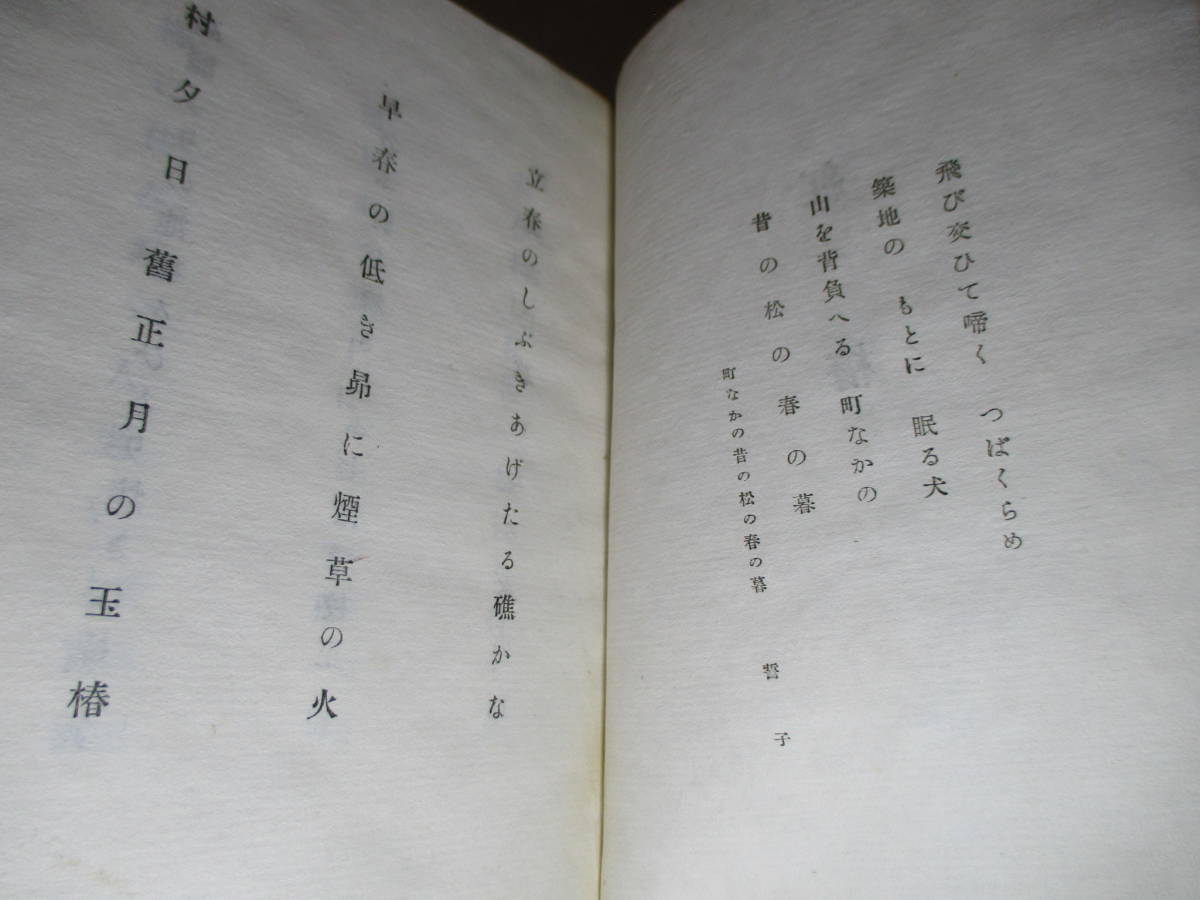 飛び交ひて啼く つばくらめ
築地の もとに 眠る犬
山を背負へる 町なかの
昔の松の春の暮
町なかの昔の松の春の暮 誓子
立春のしぶきあげたる礁かな
早春の低き昴に煙草の火
村夕日舊正月の玉椿